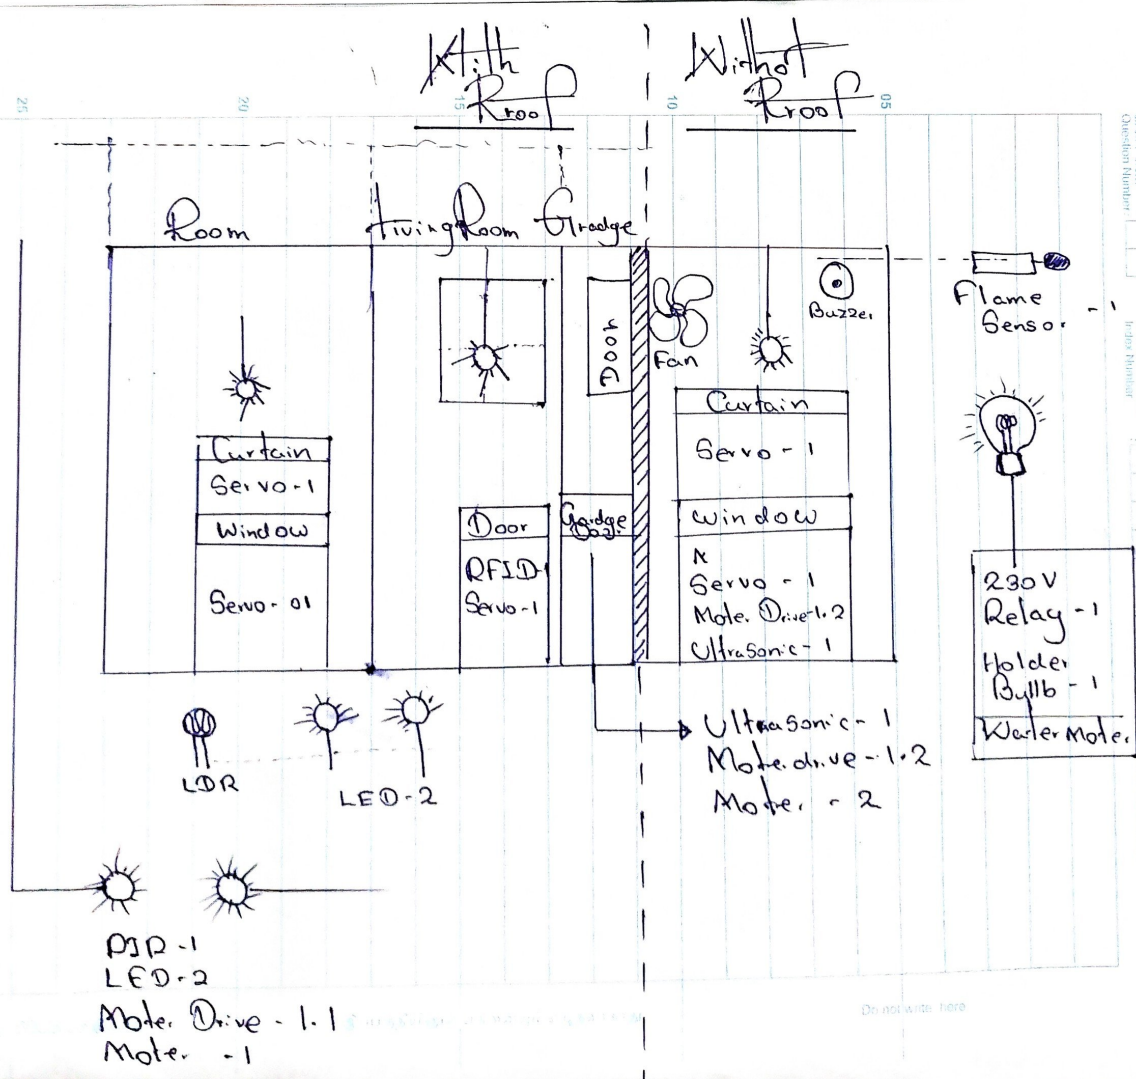 With
Rroof
Withot
Rroof
25
20
15
10
05
Question Number
Index Number
Room
Living Room
Gradge
Door
Fan
Buzzer
Flame
Sensor - 1
Curtain
Servo-1
Window
Servo-01
Door
RFID-1
Servo-1
Gardge
Door
Curtain
Servo-1
Window
Servo-1
Moter Drive-1.2
Ultrasonic-1
230V
Relay-1
Holder
Bullb-1
Water Moter
LDR
LED-2
Ultrasonic-1
Moter drive-1.2
Moter - 2
PIR-1
LED-2
Moter Drive-1.1
Moter -1
Do not write here